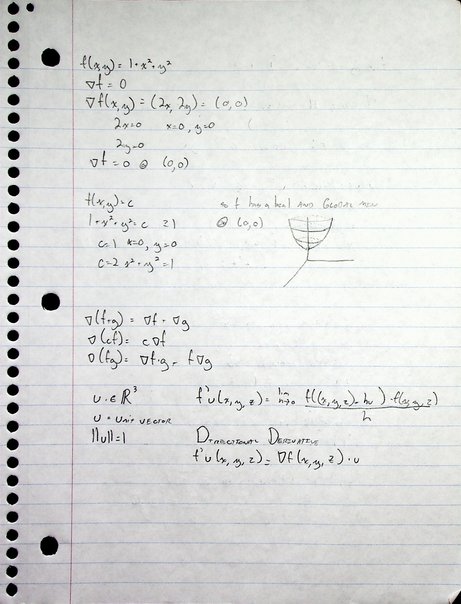 f(x,y) = 1+x²+y²
∇f = 0
∇f(x,y) = (2x, 2y) = (0,0)
2x=0 x=0, y=0
2y=0
∇f = 0 @ (0,0)
f(x,y) = c
1+x²+y² = c ≥1
c=1 x=0, y=0
c=2 x²+y²=1
so f has a local AND GLOBAL MIN
@ (0,0)
∇(f+g) = ∇f + ∇g
∇(cf) = c∇f
∇(fg) = ∇f·g + f∇g
u ∈ ℝ³
u = UNIT VECTOR
||u||=1
f'u(x,y,z) = lim h→0 f((x,y,z)+hu) - f(x,y,z)
h
DIRECTIONAL DERIVATIVE
f'u(x,y,z) = ∇f(x,y,z)·u